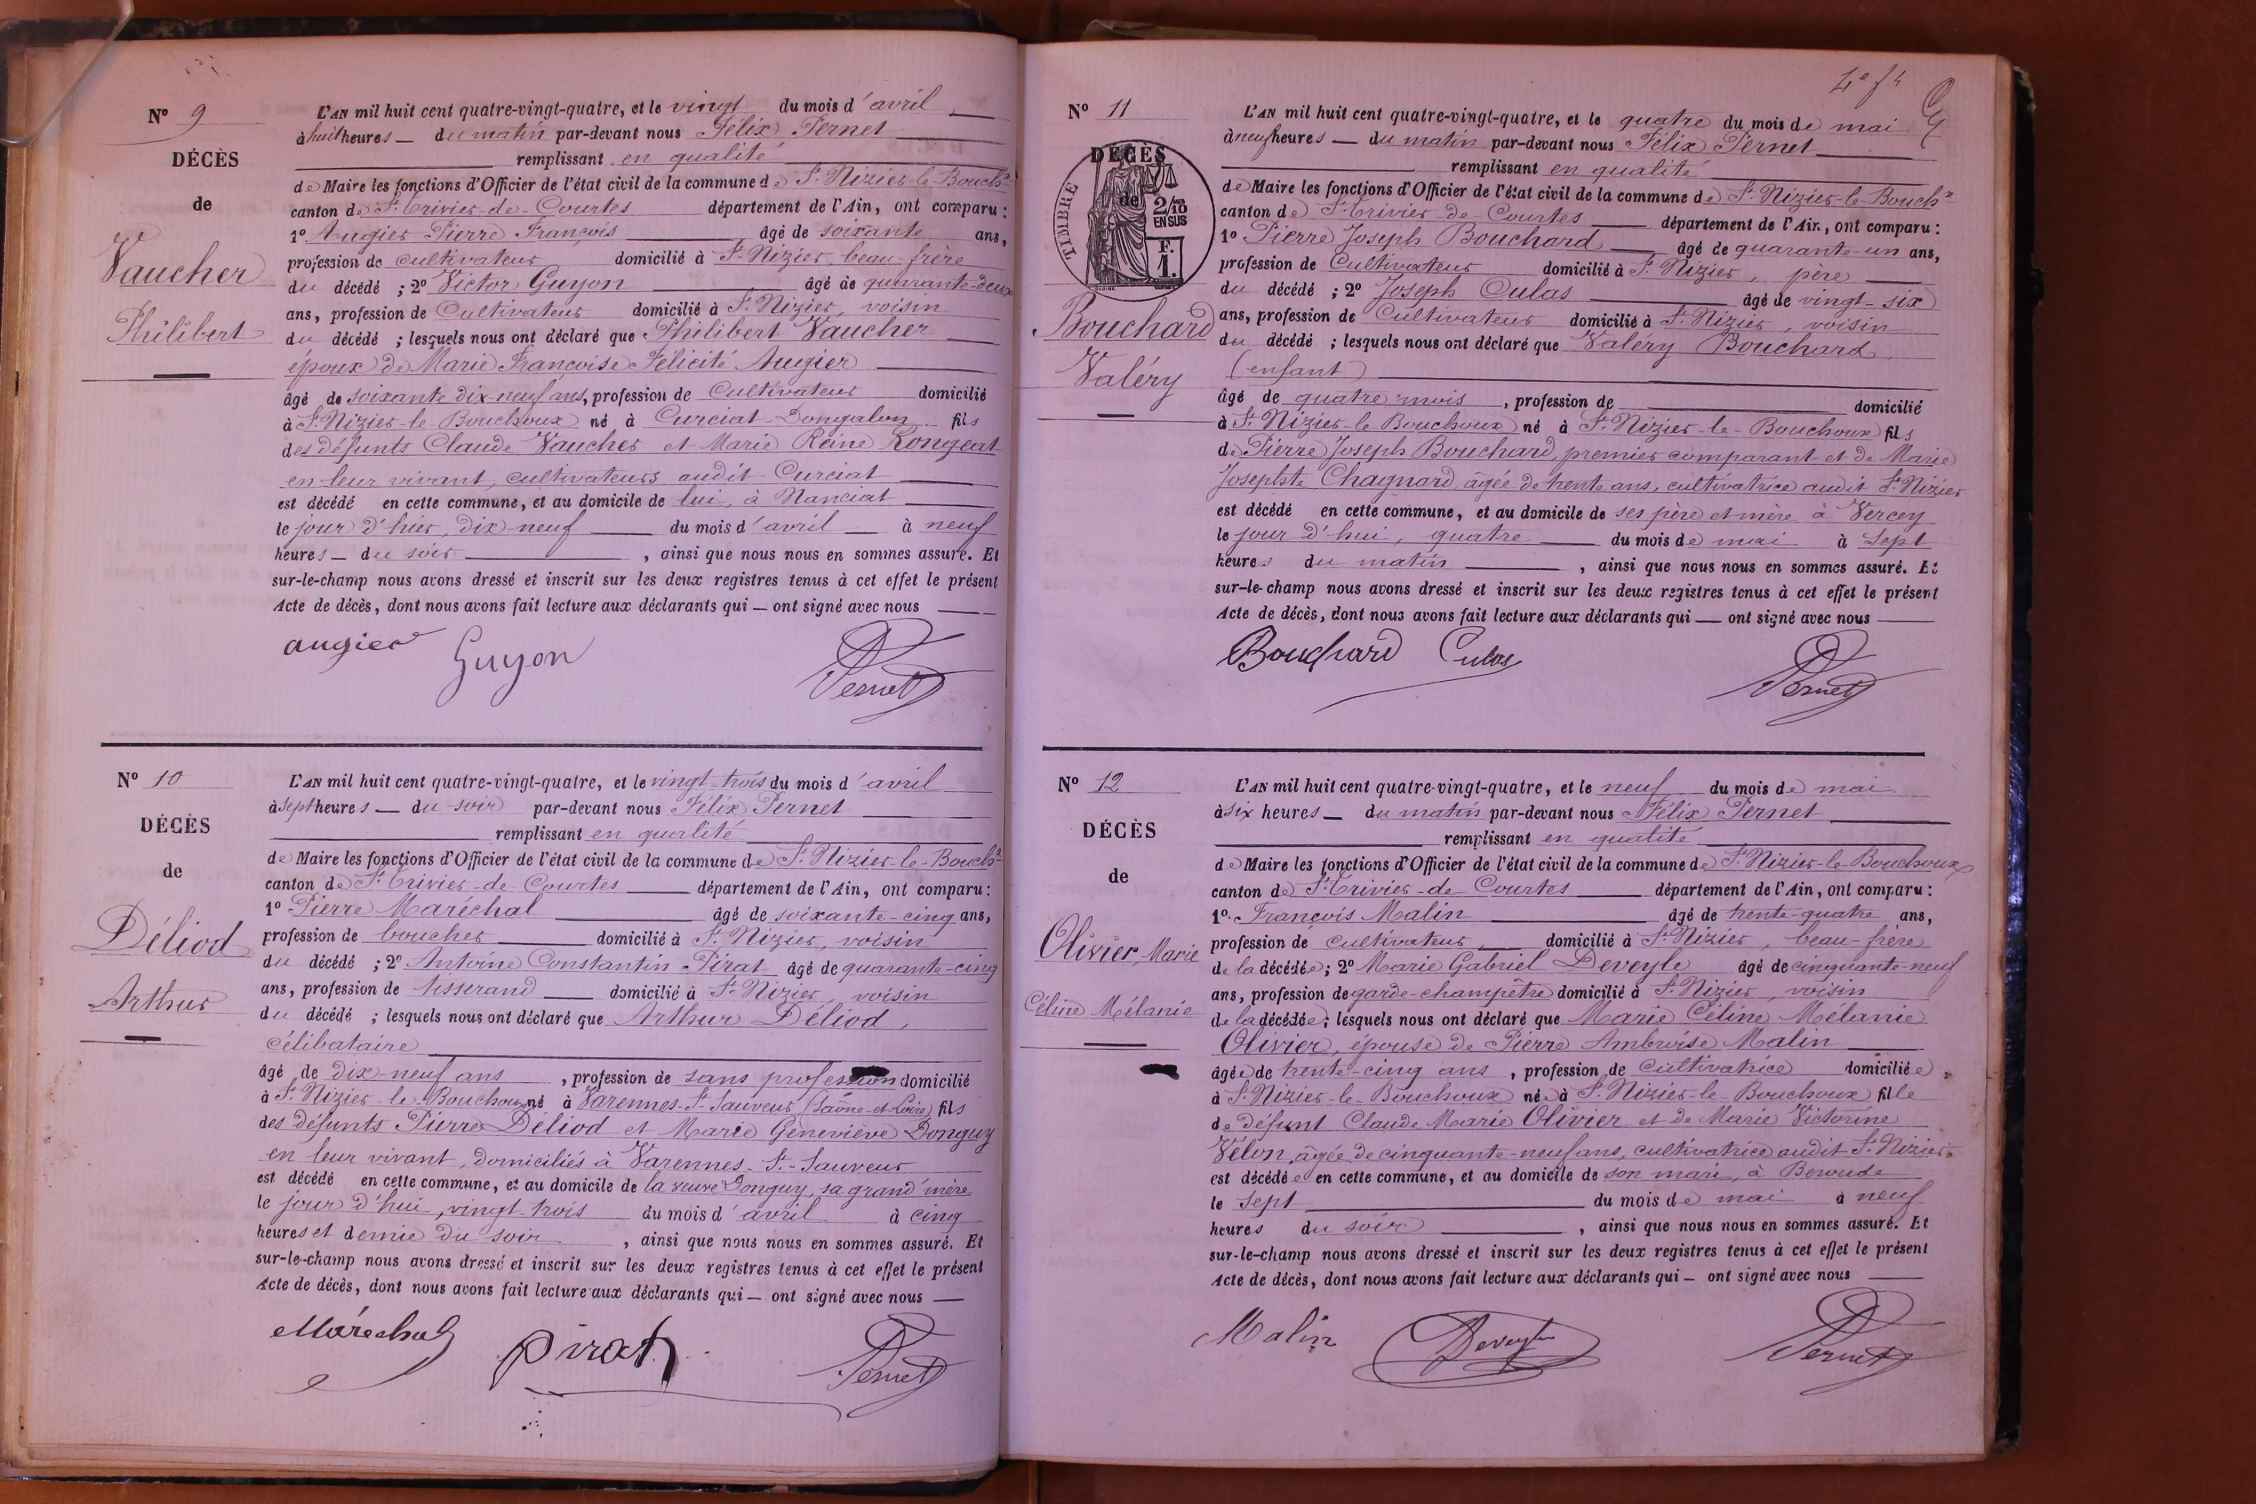 Nº 9
DÉCÈS
de
Vaucher
Philibert
L'AN mil huit cent quatre-vingt-quatre, et le vingt du mois d'avril
à huit heures du matin par-devant nous Félix Pernet
remplissant en qualité
de Maire les fonctions d'Officier de l'état civil de la commune de St Nizier-le-Bouchx
canton de St Trivier-de-Courtes département de l'Ain, ont comparu :
1º Augier Pierre François âgé de soixante ans,
profession de cultivateur domicilié à St Nizier, beau-frère
du décédé ; 2º Victor Guyon âgé de quarante-deux
ans, profession de Cultivateur domicilié à St Nizier, voisin
du décédé ; lesquels nous ont déclaré que Philibert Vaucher
époux de Marie Françoise Félicité Augier
âgé de soixante dix-neuf ans, profession de Cultivateur domicilié
à St Nizier-le Bouchoux né à Curciat-Dongalon fils
des défunts Claude Vaucher et Marie Reine Rongeat
en leur vivant, cultivateurs audit Curciat
est décédé en cette commune, et au domicile de lui, à Nanciat
le jour d'hier, dix-neuf du mois d'avril à neuf
heures du soir, ainsi que nous nous en sommes assuré. Et
sur-le-champ nous avons dressé et inscrit sur les deux registres tenus à cet effet le présent
Acte de décès, dont nous avons fait lecture aux déclarants qui — ont signé avec nous
augier Guyon Pernet
Nº 10
DÉCÈS
de
Déliod
Arthur
L'AN mil huit cent quatre-vingt-quatre, et le vingt-trois du mois d'avril
à sept heures du soir par-devant nous Félix Pernet
remplissant en qualité
de Maire les fonctions d'Officier de l'état civil de la commune de St Nizier-le-Bouchx
canton de St Trivier-de-Courtes département de l'Ain, ont comparu :
1º Pierre Maréchal âgé de soixante-cinq ans,
profession de boucher domicilié à St Nizier, voisin
du décédé ; 2º Antoine Constantin Pirat âgé de quarante-cinq
ans, profession de tisserand domicilié à St Nizier, voisin
du décédé ; lesquels nous ont déclaré que Arthur Déliod,
célibataire
âgé de dix-neuf ans, profession de sans profession domicilié
à St Nizier-le-Bouchoux né à Varennes-St-Sauveur (Saône-et-Loire) fils
des défunts Pierre Déliod et Marie Geneviève Donguy
en leur vivant, domiciliés à Varennes-St-Sauveur
est décédé en cette commune, et au domicile de la veuve Donguy, sa grand'mère
le jour d'hui, vingt-trois du mois d'avril à cinq
heures et demie du soir, ainsi que nous nous en sommes assuré. Et
sur-le-champ nous avons dressé et inscrit sur les deux registres tenus à cet effet le présent
Acte de décès, dont nous avons fait lecture aux déclarants qui — ont signé avec nous —
Maréchal Pirat Pernet
4e ft
Nº 11
DÉCÈS
de
TIMBRE
2/10
EN SUS
F.
1.
Bouchard
Valéry
L'AN mil huit cent quatre-vingt-quatre, et le quatre du mois de mai
à neuf heures — du matin par-devant nous Félix Pernet
remplissant en qualité
de Maire les fonctions d'Officier de l'état civil de la commune de St Nizier-le-Bouchx
canton de St Trivier-de-Courtes département de l'Ain, ont comparu :
1º Pierre Joseph Bouchard âgé de quarante-un ans,
profession de Cultivateur domicilié à St Nizier, père
du décédé ; 2º Joseph Culas âgé de vingt-six
ans, profession de Cultivateur domicilié à St Nizier, voisin
du décédé ; lesquels nous ont déclaré que Valéry Bouchard
(enfant)
âgé de quatre mois, profession de domicilié
à St Nizier-le Bouchoux né à St Nizier-le-Bouchoux fils
de Pierre Joseph Bouchard, premier comparant et de Marie
Josephte Chagnard, âgée de trente ans, cultivatrice audit St Nizier
est décédé en cette commune, et au domicile de ses père et mère à Vercey
le jour d'hui, quatre du mois de mai à sept
heures du matin, ainsi que nous nous en sommes assuré. Et
sur-le-champ nous avons dressé et inscrit sur les deux registres tenus à cet effet le présent
Acte de décès, dont nous avons fait lecture aux déclarants qui — ont signé avec nous —
Bouchard Culas Pernet
Nº 12
DÉCÈS
de
Olivier, Marie
Céline Mélanie
L'AN mil huit cent quatre-vingt-quatre, et le neuf du mois de mai
à six heures — du matin par-devant nous Félix Pernet
remplissant en qualité
de Maire les fonctions d'Officier de l'état civil de la commune de St Nizier-le-Bouchoux
canton de St Trivier-de-Courtes département de l'Ain, ont comparu :
1º François Malin âgé de trente-quatre ans,
profession de cultivateur domicilié à St Nizier, beau-frère
de la décédée ; 2º Marie Gabriel Deveyle âgé de cinquante-neuf
ans, profession de garde-champêtre domicilié à St Nizier, voisin
de la décédée ; lesquels nous ont déclaré que Marie Céline Mélanie
Olivier, épouse de Pierre Ambroise Malin
âgée de trente-cinq ans, profession de Cultivatrice domiciliée
à St Nizier-le-Bouchoux née à St Nizier-le-Bouchoux fille
de défunt Claude Marie Olivier et de Marie Victorine
Vélon, âgée de cinquante-neuf ans, cultivatrice audit St Nizier
est décédée en cette commune, et au domicile de son mari, à Beroude
le sept du mois de mai à neuf
heures du soir, ainsi que nous nous en sommes assuré. Et
sur-le-champ nous avons dressé et inscrit sur les deux registres tenus à cet effet le présent
Acte de décès, dont nous avons fait lecture aux déclarants qui — ont signé avec nous —
Malin Deveyle Pernet